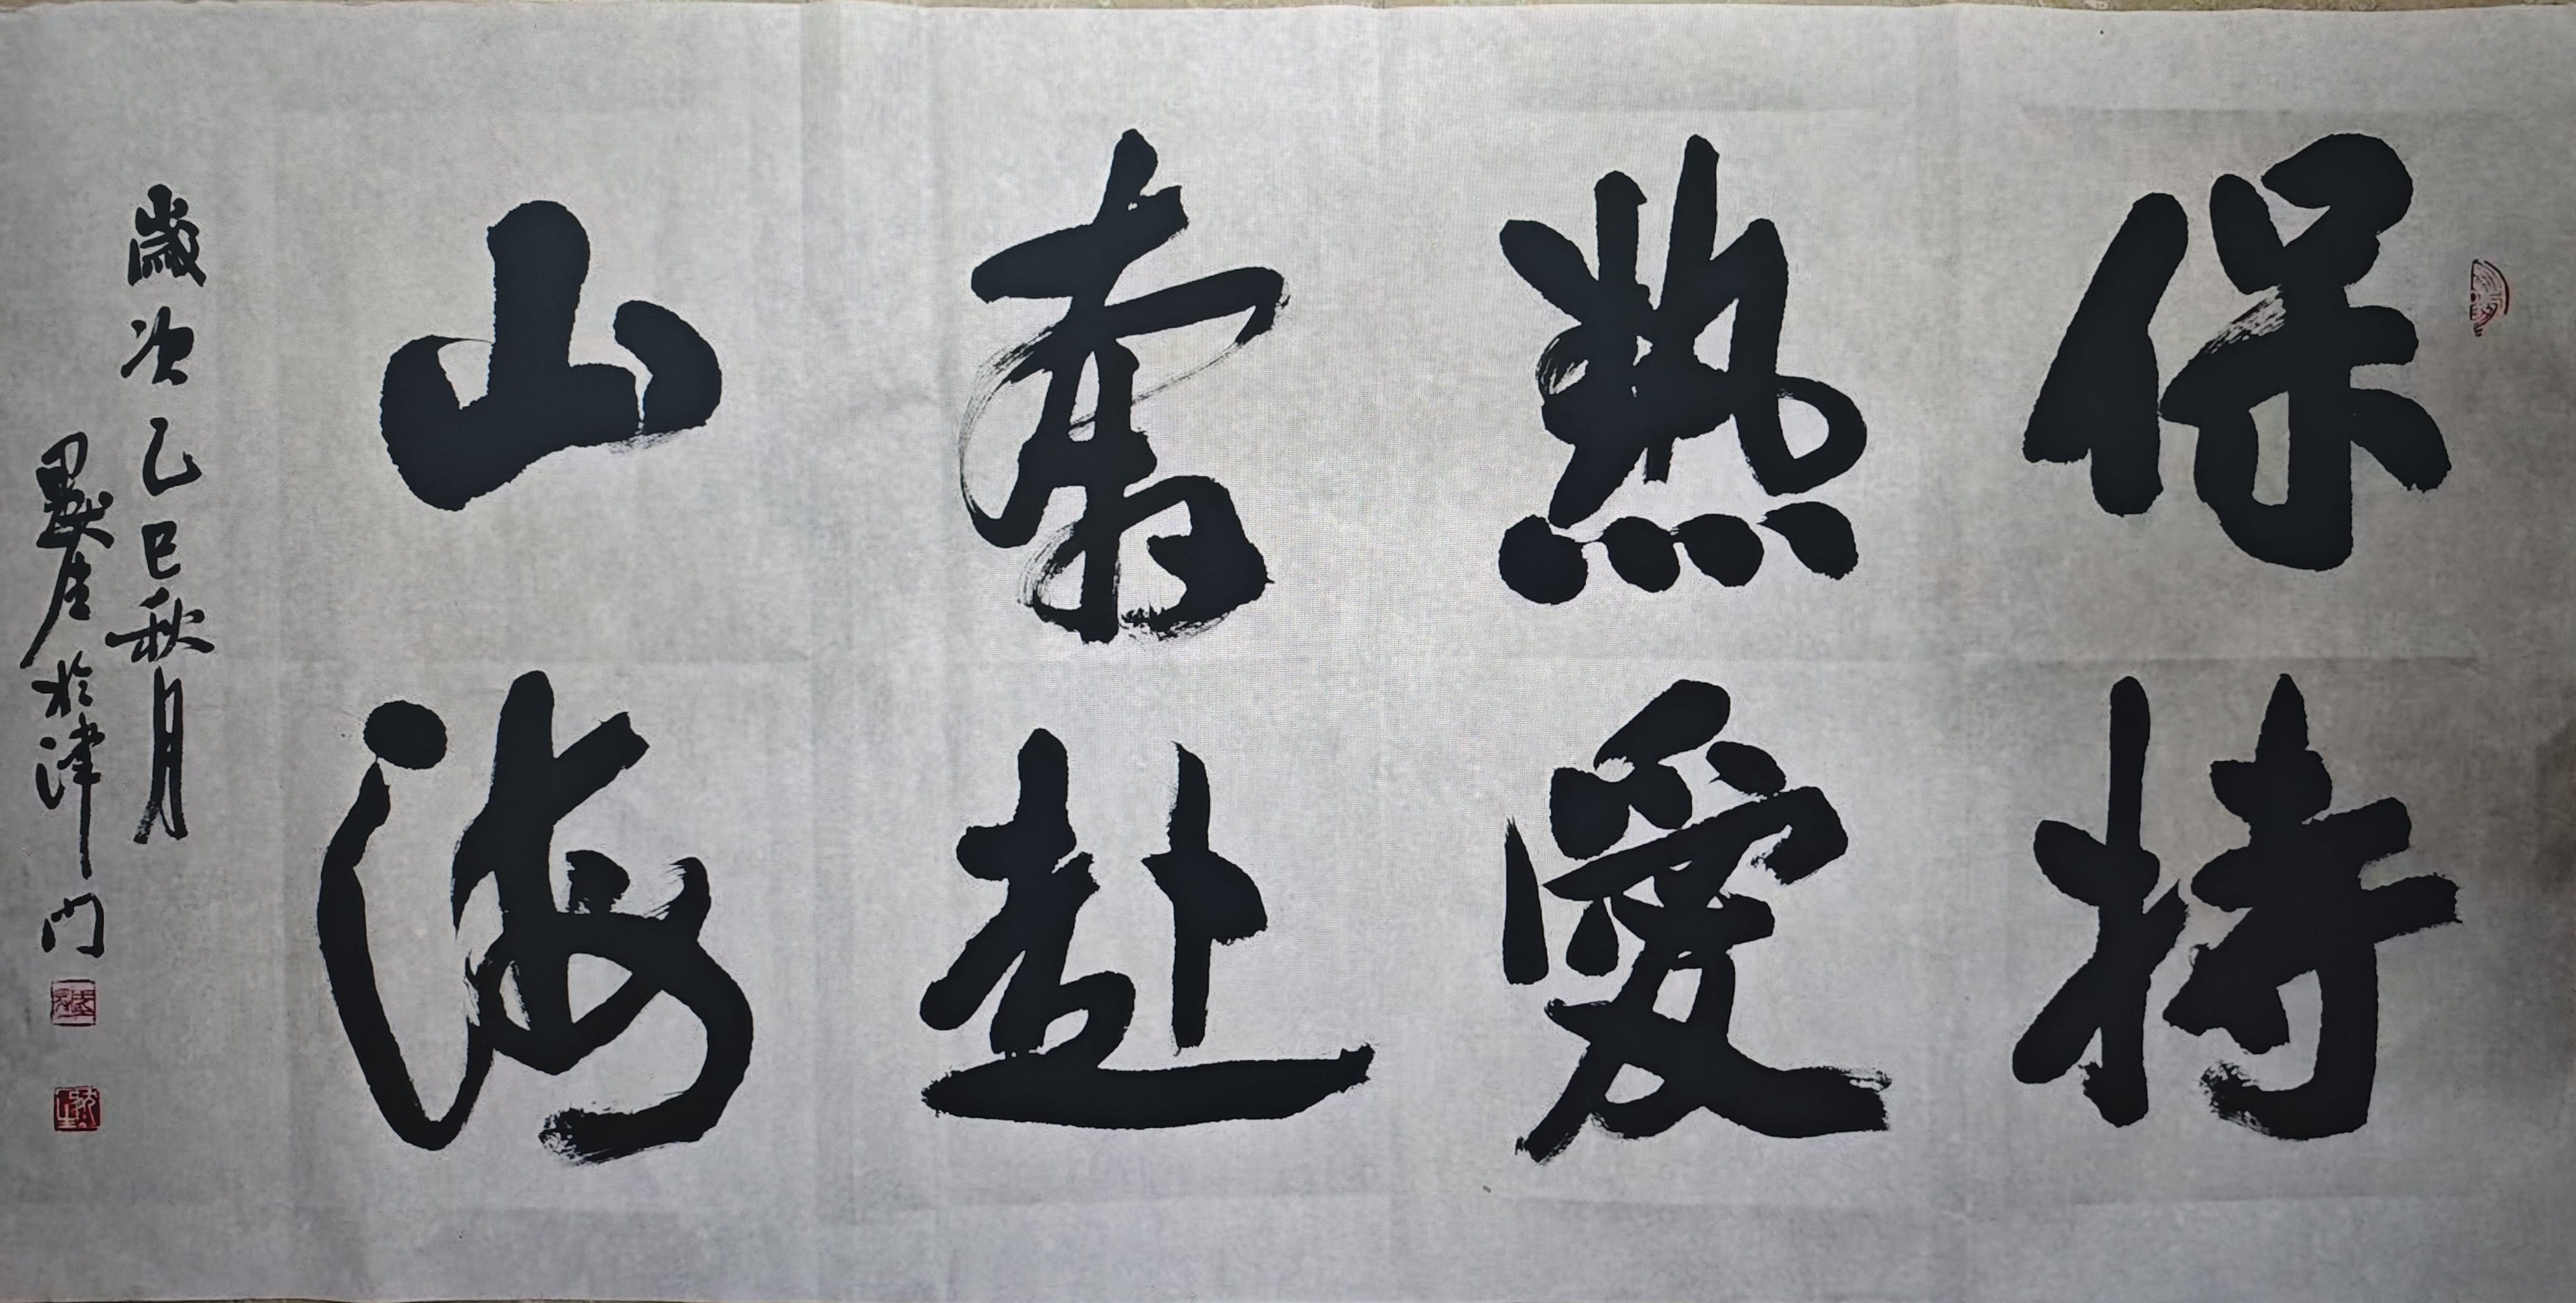 保持
熱愛
奔赴
山海
歲次乙巳秋月
墨生於津門